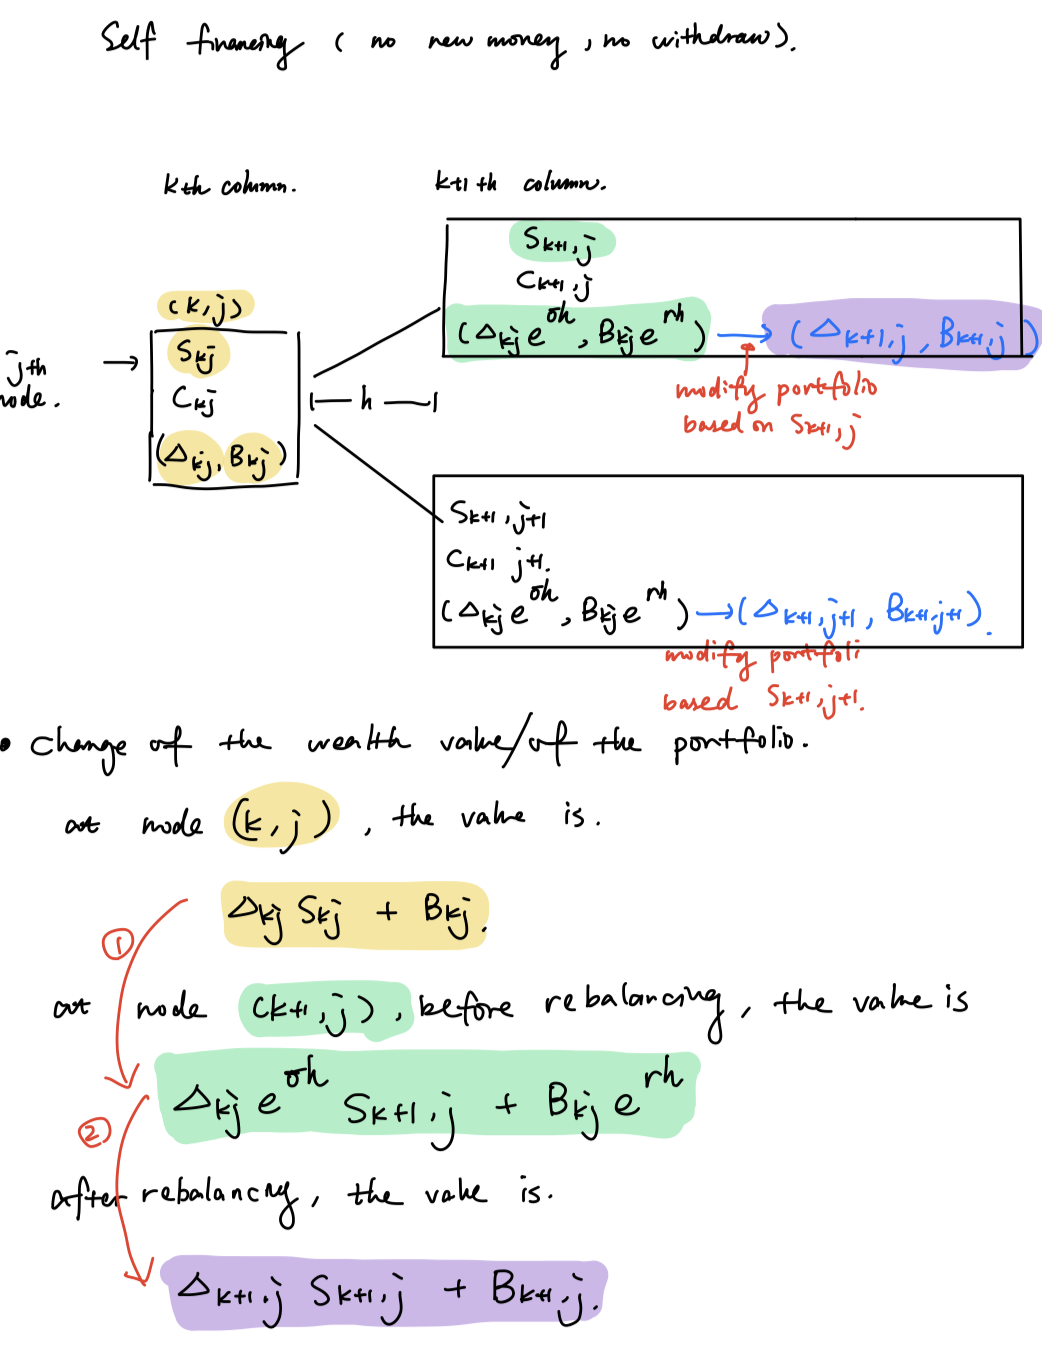 Self financing ( no new money , no withdraw ).
kth column.
k+1 th column.
(k, j)
jth
node.
S_{kj}
C_{kj}
(Δ_{kj}, B_{kj})
h
S_{k+1,j}
C_{k+1,j}
(Δ_{kj} e^{δh}, B_{kj} e^{rh}) → (Δ_{k+1,j}, B_{k+1,j})
modify portfolio
based on S_{k+1,j}
S_{k+1,j+1}
C_{k+1 j+1}.
(Δ_{kj} e^{δh}, B_{kj} e^{rh}) → (Δ_{k+1,j+1}, B_{k+1,j+1}).
modify portfoli
based S_{k+1,j+1}.
• Change of the wealth value/of the portfolio.
at node (k, j), the value is.
Δ_{kj} S_{kj} + B_{kj}.
①
at node (k+1, j), before rebalancing, the value is
Δ_{kj} e^{δh} S_{k+1,j} + B_{kj} e^{rh}
②
after rebalancing, the value is.
Δ_{k+1,j} S_{k+1,j} + B_{k+1,j}.